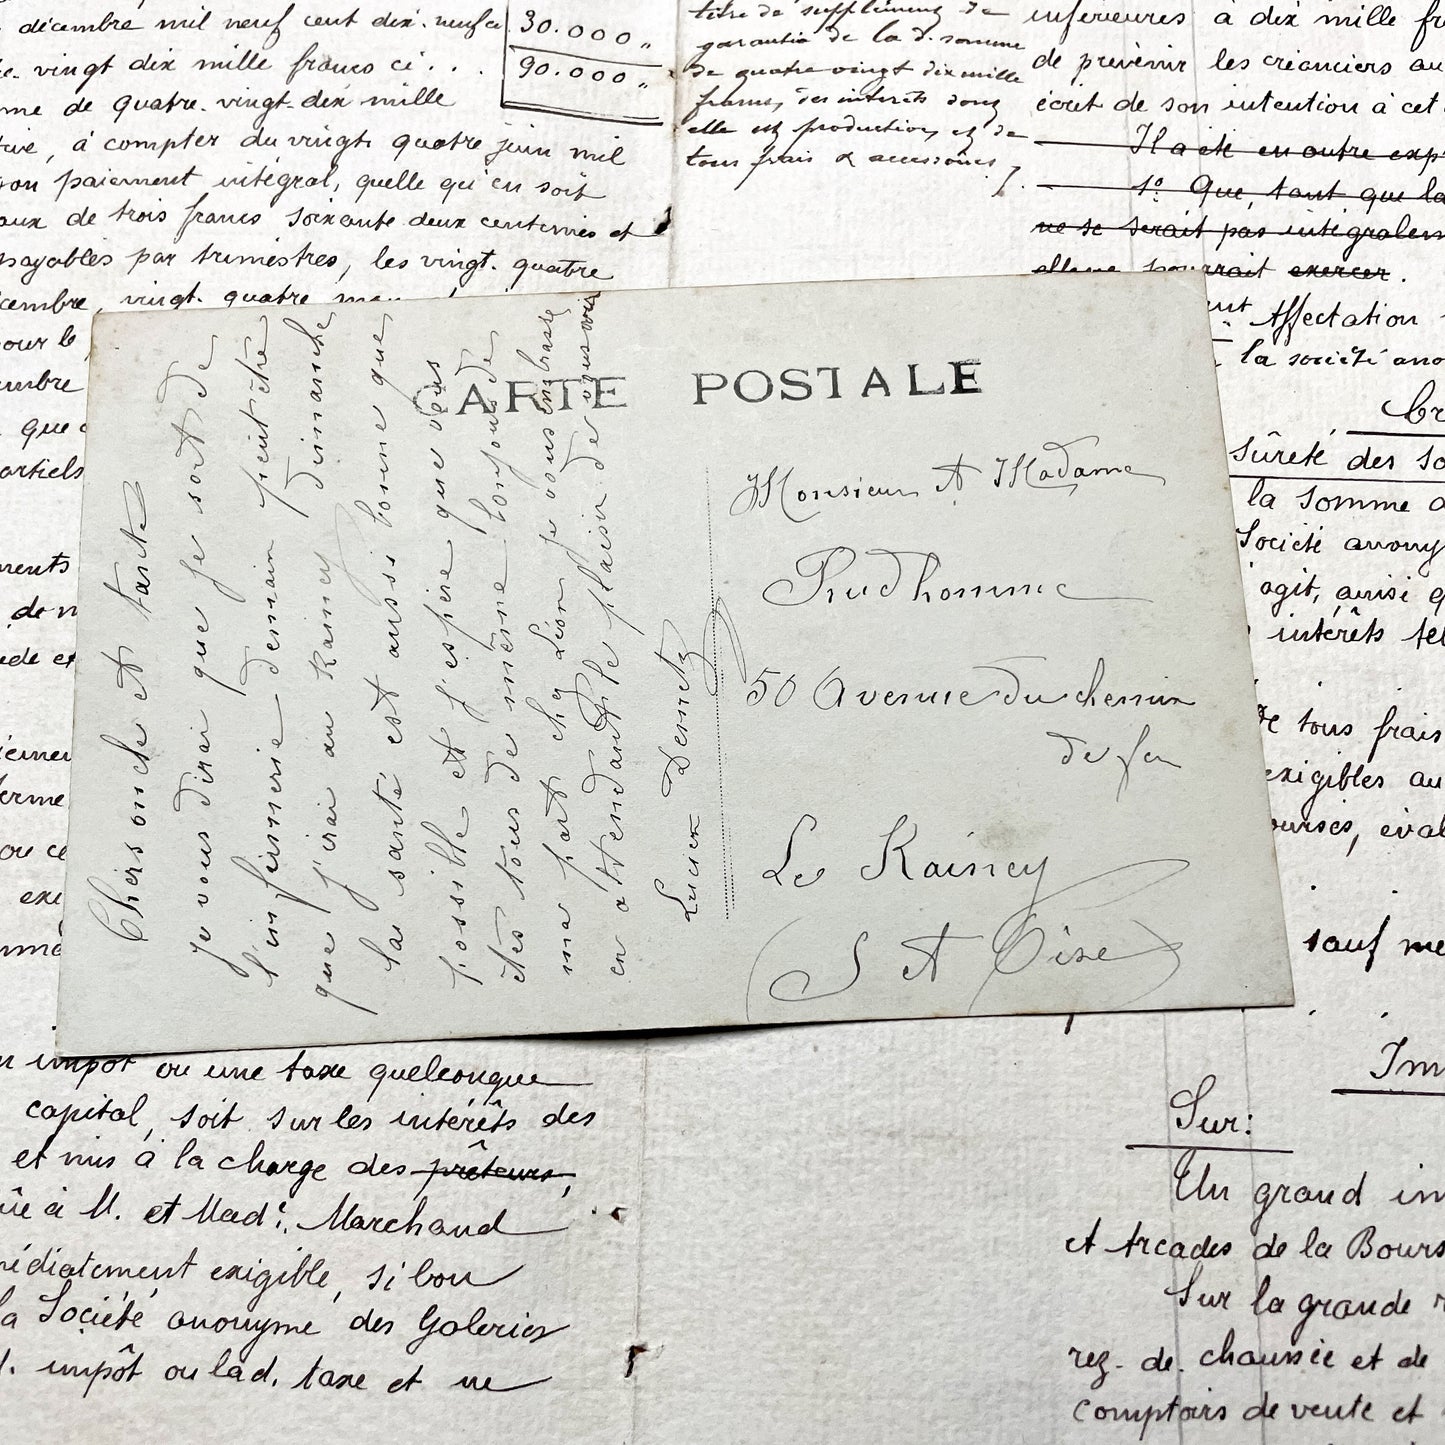 décembre mil neuf cent dix-neuf ce
30.000 "
vingt dix mille francs ci . . .
90.000 "
me de quatre-vingt-dix mille
, à compter du vingt quatre juin mil
son paiement intégral, quelle qu'en soit
aux de trois francs soixante deux centimes et
payables par trimestres, les vingt-quatre
cembre, vingt-quatre
pour le
embre
que
artiels
ments
de
ède et
ou ce
exi
titre de supplément de
garantie de la d. somme
de quatre vingt dix mille
francs, des intérêts dont
elle est production, et de
tous frais & accessoires.
inférieures à dix mille
de prévenir les créanciers au
écrit de son intention à cet
Il a été en outre exp
1º Que, tant que la
ne se serait pas intégralem
elle ne pourrait exercer.
Affectation
la société ano
sûreté des So
la somme
Société anony
agit, ainsi q
intérêts tel
de tous frais
exigibles au
ourses, éval
sauf me
Im
Sur:
Un grand im
et Arcades de la Bours
Sur la grande
rez-de-chaussée et de
comptoirs de vente et
CARTE POSTALE
Chers oncle et tante
je vous dirai que je sort de
l'infirmerie demain peut être
que j'irai au Rainey dimanche
la santé est aussi bonne que
possible et j'espère que vous
êtes tous de même bonjour de
ma part chez Léon je vous embrasse
en attendant le plaisir de vous voir
Lucien Demetz
Monsieur et Madame
Prudhomme
50 Avenue du chemin
de fer
Le Rainey
(S et Oise)
impôt ou une taxe quelconque
capital, soit sur les intérêts des
et mis à la charge des prêteurs,
à M. et Made. Marchand
médiatement exigible, si bon
la Société anonyme des Galeries
impôt ou lad. taxe et ne